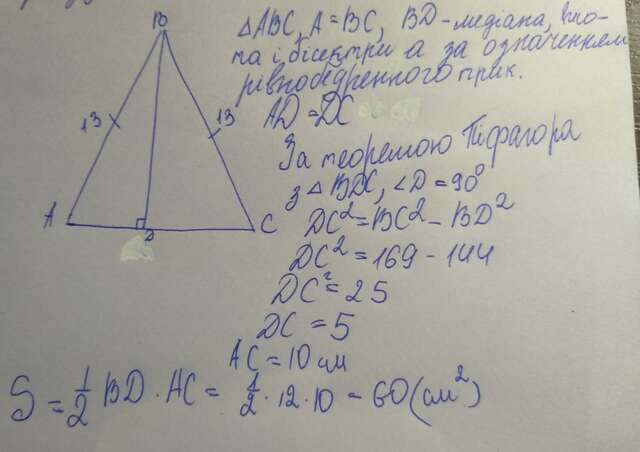 B
13
13
A
D
C
△ABC, A=BC, BD-медіана, висо-
та і бісектриса за означенням
рівнобедренного трик.
AD=DC
За теоремою Піфагора
з △BDC, ∠D=90°
DC²=BC²-BD²
DC²=169-144
DC²=25
DC=5
AC=10 см
S=1/2 BD·AC=1/2·12·10-60(см²)